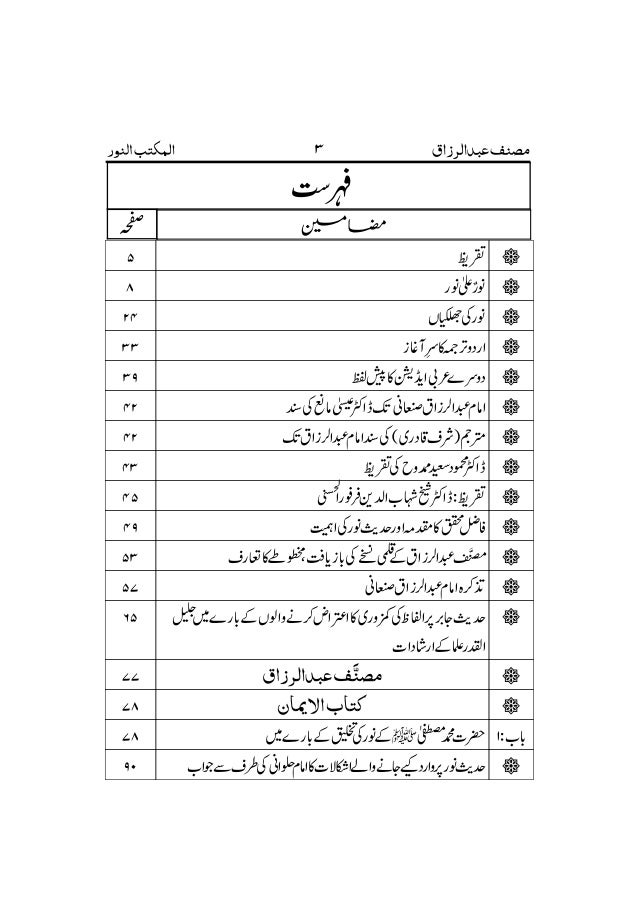 مصنف عبدالرزاق ۳ المکتب النور
فہرست
مضامین صفحہ
تقریظ ۵
نورٌ علیٰ نور ۸
نور کی جھلکیاں ۲۴
اردو ترجمہ کا سرِ آغاز ۳۳
دوسرے عربی ایڈیشن کا پیش لفظ ۳۹
امام عبدالرزاق صنعانی تک ڈاکٹر عیسیٰ مانع کی سند ۴۲
مترجم (شرف قادری) کی سند امام عبدالرزاق تک ۴۲
ڈاکٹر محمود سعید ممدوح کی تقریظ ۴۳
تقریظ: ڈاکٹر شیخ شہاب الدین فرفور الحسنی ۴۵
فاضل محقق کا مقدمہ اور حدیث نور کی اہمیت ۴۹
مصنَّف عبدالرزاق کے قلمی نسخے کی بازیافت، مخطوطے کا تعارف ۵۳
تذکرہ امام عبدالرزاق صنعانی ۵۷
حدیث جابر پر الفاظ کی کمزوری کا اعتراض کرنے والوں کے بارے میں جلیل ۶۵
القدر علما کے ارشادات
مصنَّف عبدالرزاق ۷۷
کتاب الایمان ۷۸
باب:۱ حضرت محمد مصطفیٰ ﷺ کے نور کی تخلیق کے بارے میں ۷۸
حدیث نور پر وارد کیے جانے والے اشکالات کا امام حلوانی کی طرف سے جواب ۹۰